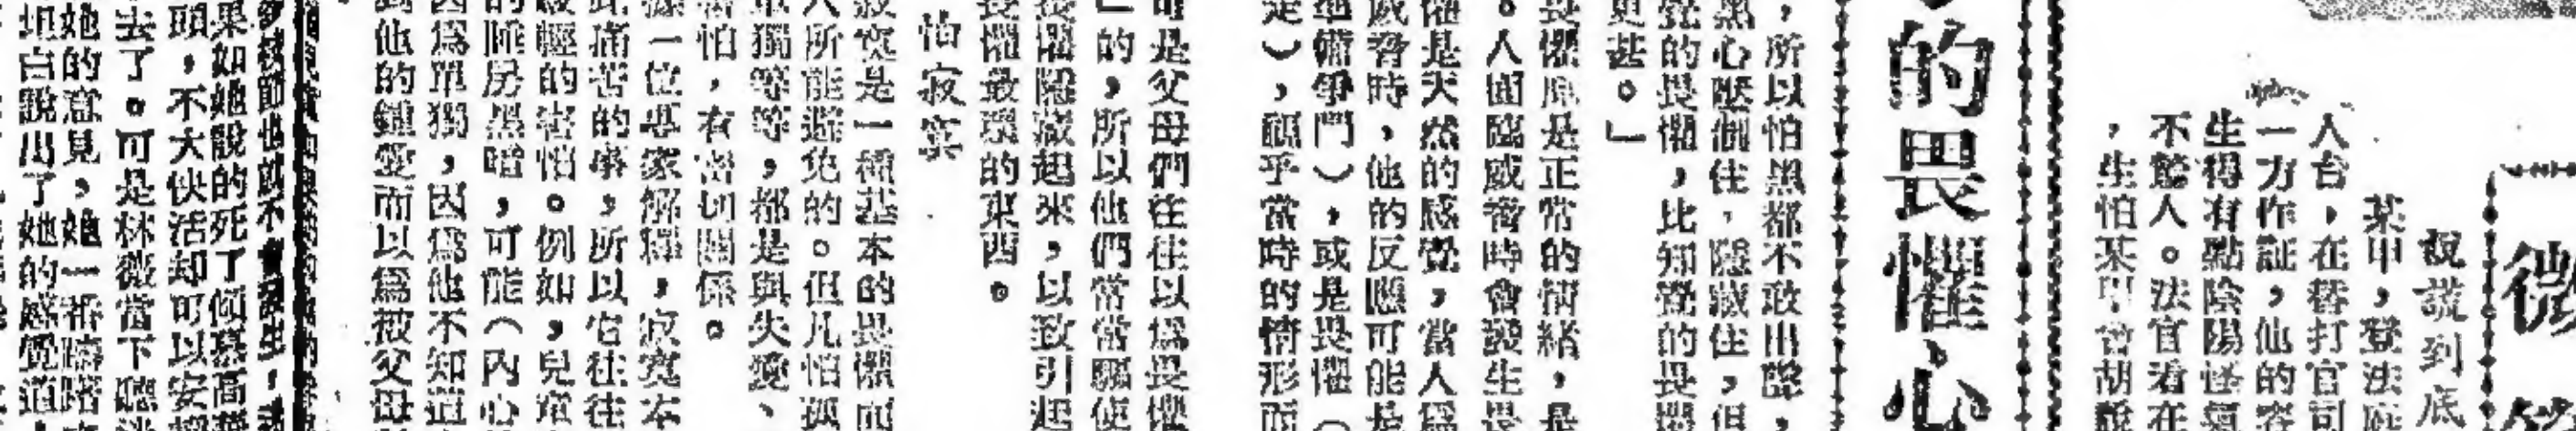 微
說謊到底
某甲，登法庭
人台，在替打官司
一方作証，他的容
生得有點陰陽怪氣
不驚人。法官看在
，生怕某甲會胡說
的畏懼心
，所以怕黑都不敢出聲，
黑心壓制住，隱藏住，但
覺的畏懼，比知覺的畏懼
更甚。」
畏懼原是正常的情緒，是
。人面臨威脅時會發生畏
懼是天然的感覺，當人爲
威脅時，他的反應可能是
準備爭鬥），或是畏懼（
是），視乎當時的情形而
可是父母們往往以爲畏懼
」的，所以他們常常驅使
畏懼隱藏起來，以致引起
畏懼最壞的東西。
怕寂寞
寂寞是一種基本的畏懼而
人所能避免的。但凡怕孤
單獨等等，都是與失愛、
害怕，有密切關係。
據一位專家解釋，寂寞本
此痛苦的事，所以它往往
較輕的害怕。例如，兒童
的睡房黑暗，可能（內心
因爲單獨，因爲他不知道
到他的鍾愛而以爲被父母
果如她說的死了倾慕高
頭，不大快活却可以安
去了。可是林薇當下聽
她的意見，她一番躊躇
坦白說出了她的感覺道